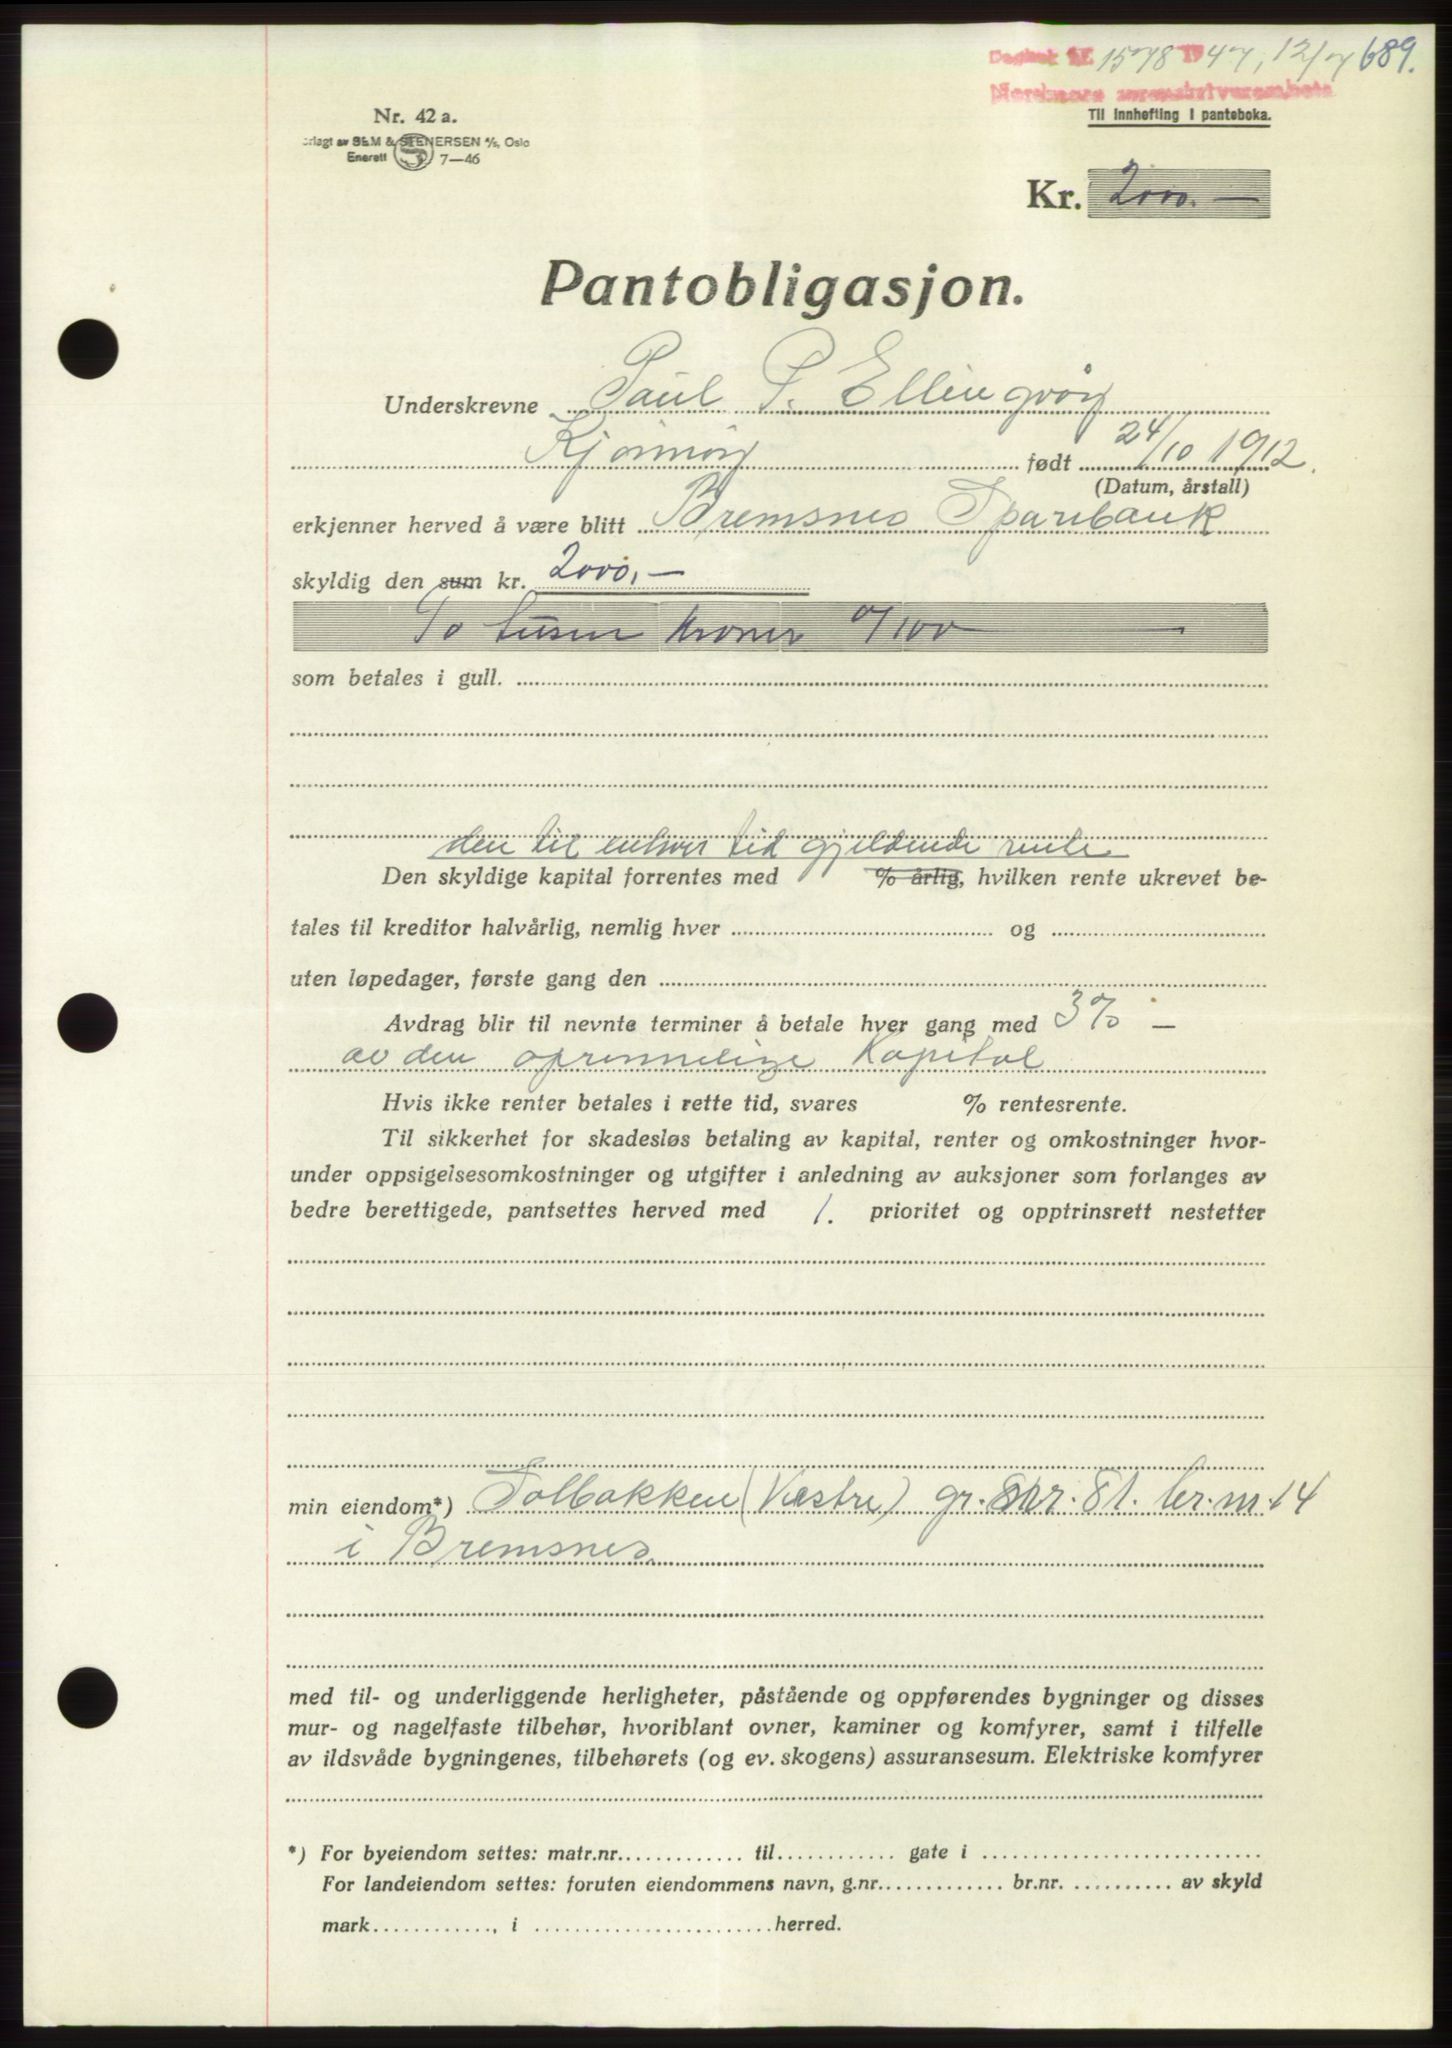 Dagbok nr. 1578 1947, 12/7 689.
Nordmøre sorenskriverembete
Til innhefting i panteboka.
Nr. 42 a.
rlagt av SEM & STENERSEN A/S, Oslo
Enerett 7—46
Kr. 2000.—
Pantobligasjon.
Underskrevne Paul P. Ellingvåg
født 24/10 1912.
(Datum, årstall)
erkjenner herved å være blitt Bremsnes Sparebank
skyldig den sum kr. 2000,—
To tusen kroner 0/100 — —
som betales i gull.
den til enhver tid gjeldende rente
Den skyldige kapital forrentes med % årlig, hvilken rente ukrevet be-
tales til kreditor halvårlig, nemlig hver og
uten løpedager, første gang den
Avdrag blir til nevnte terminer å betale hver gang med 3% —
av den oprinnelige Kapital
Hvis ikke renter betales i rette tid, svares % rentesrente.
Til sikkerhet for skadesløs betaling av kapital, renter og omkostninger hvor-
under oppsigelsesomkostninger og utgifter i anledning av auksjoner som forlanges av
bedre berettigede, pantsettes herved med 1. prioritet og opptrinsrett nestetter
min eiendom*) Solbakken (Vestre) gr. nr. 81. br. nr. 14
i Bremsnes.
med til- og underliggende herligheter, påstående og oppførendes bygninger og disses
mur- og nagelfaste tilbehør, hvoriblant ovner, kaminer og komfyrer, samt i tilfelle
av ildsvåde bygningenes, tilbehørets (og ev. skogens) assuransesum. Elektriske komfyrer
*) For byeiendom settes: matr.nr. til gate i
For landeiendom settes: foruten eiendommens navn, g.nr. br.nr. av skyld
mark , i herred.